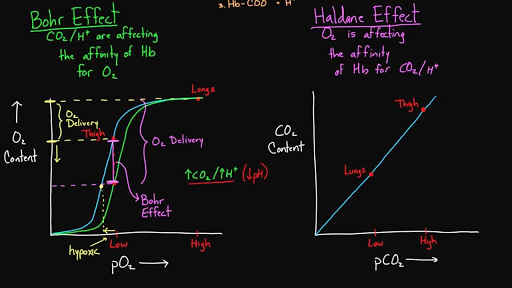 3. Hb-COO + H⁺
Bohr Effect
CO₂/H⁺ are affecting
the affinity of Hb
for O₂
Haldane Effect
O₂ is affecting
the affinity
of Hb for CO₂/H⁺
↑
O₂
Content
O₂
Delivery
Thigh
Lungs
O₂ Delivery
↑CO₂/↑H⁺ (↓pH)
Bohr
Effect
hypoxic
Low
High
pO₂ →
CO₂
Content
Thigh
Lungs
Low
High
pCO₂ →